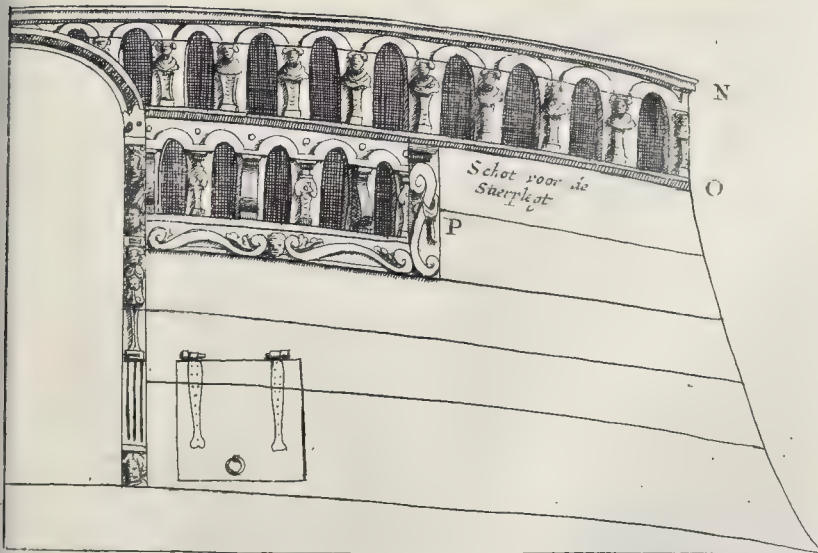 N
Schot voor de
Stuerplegt
O
P